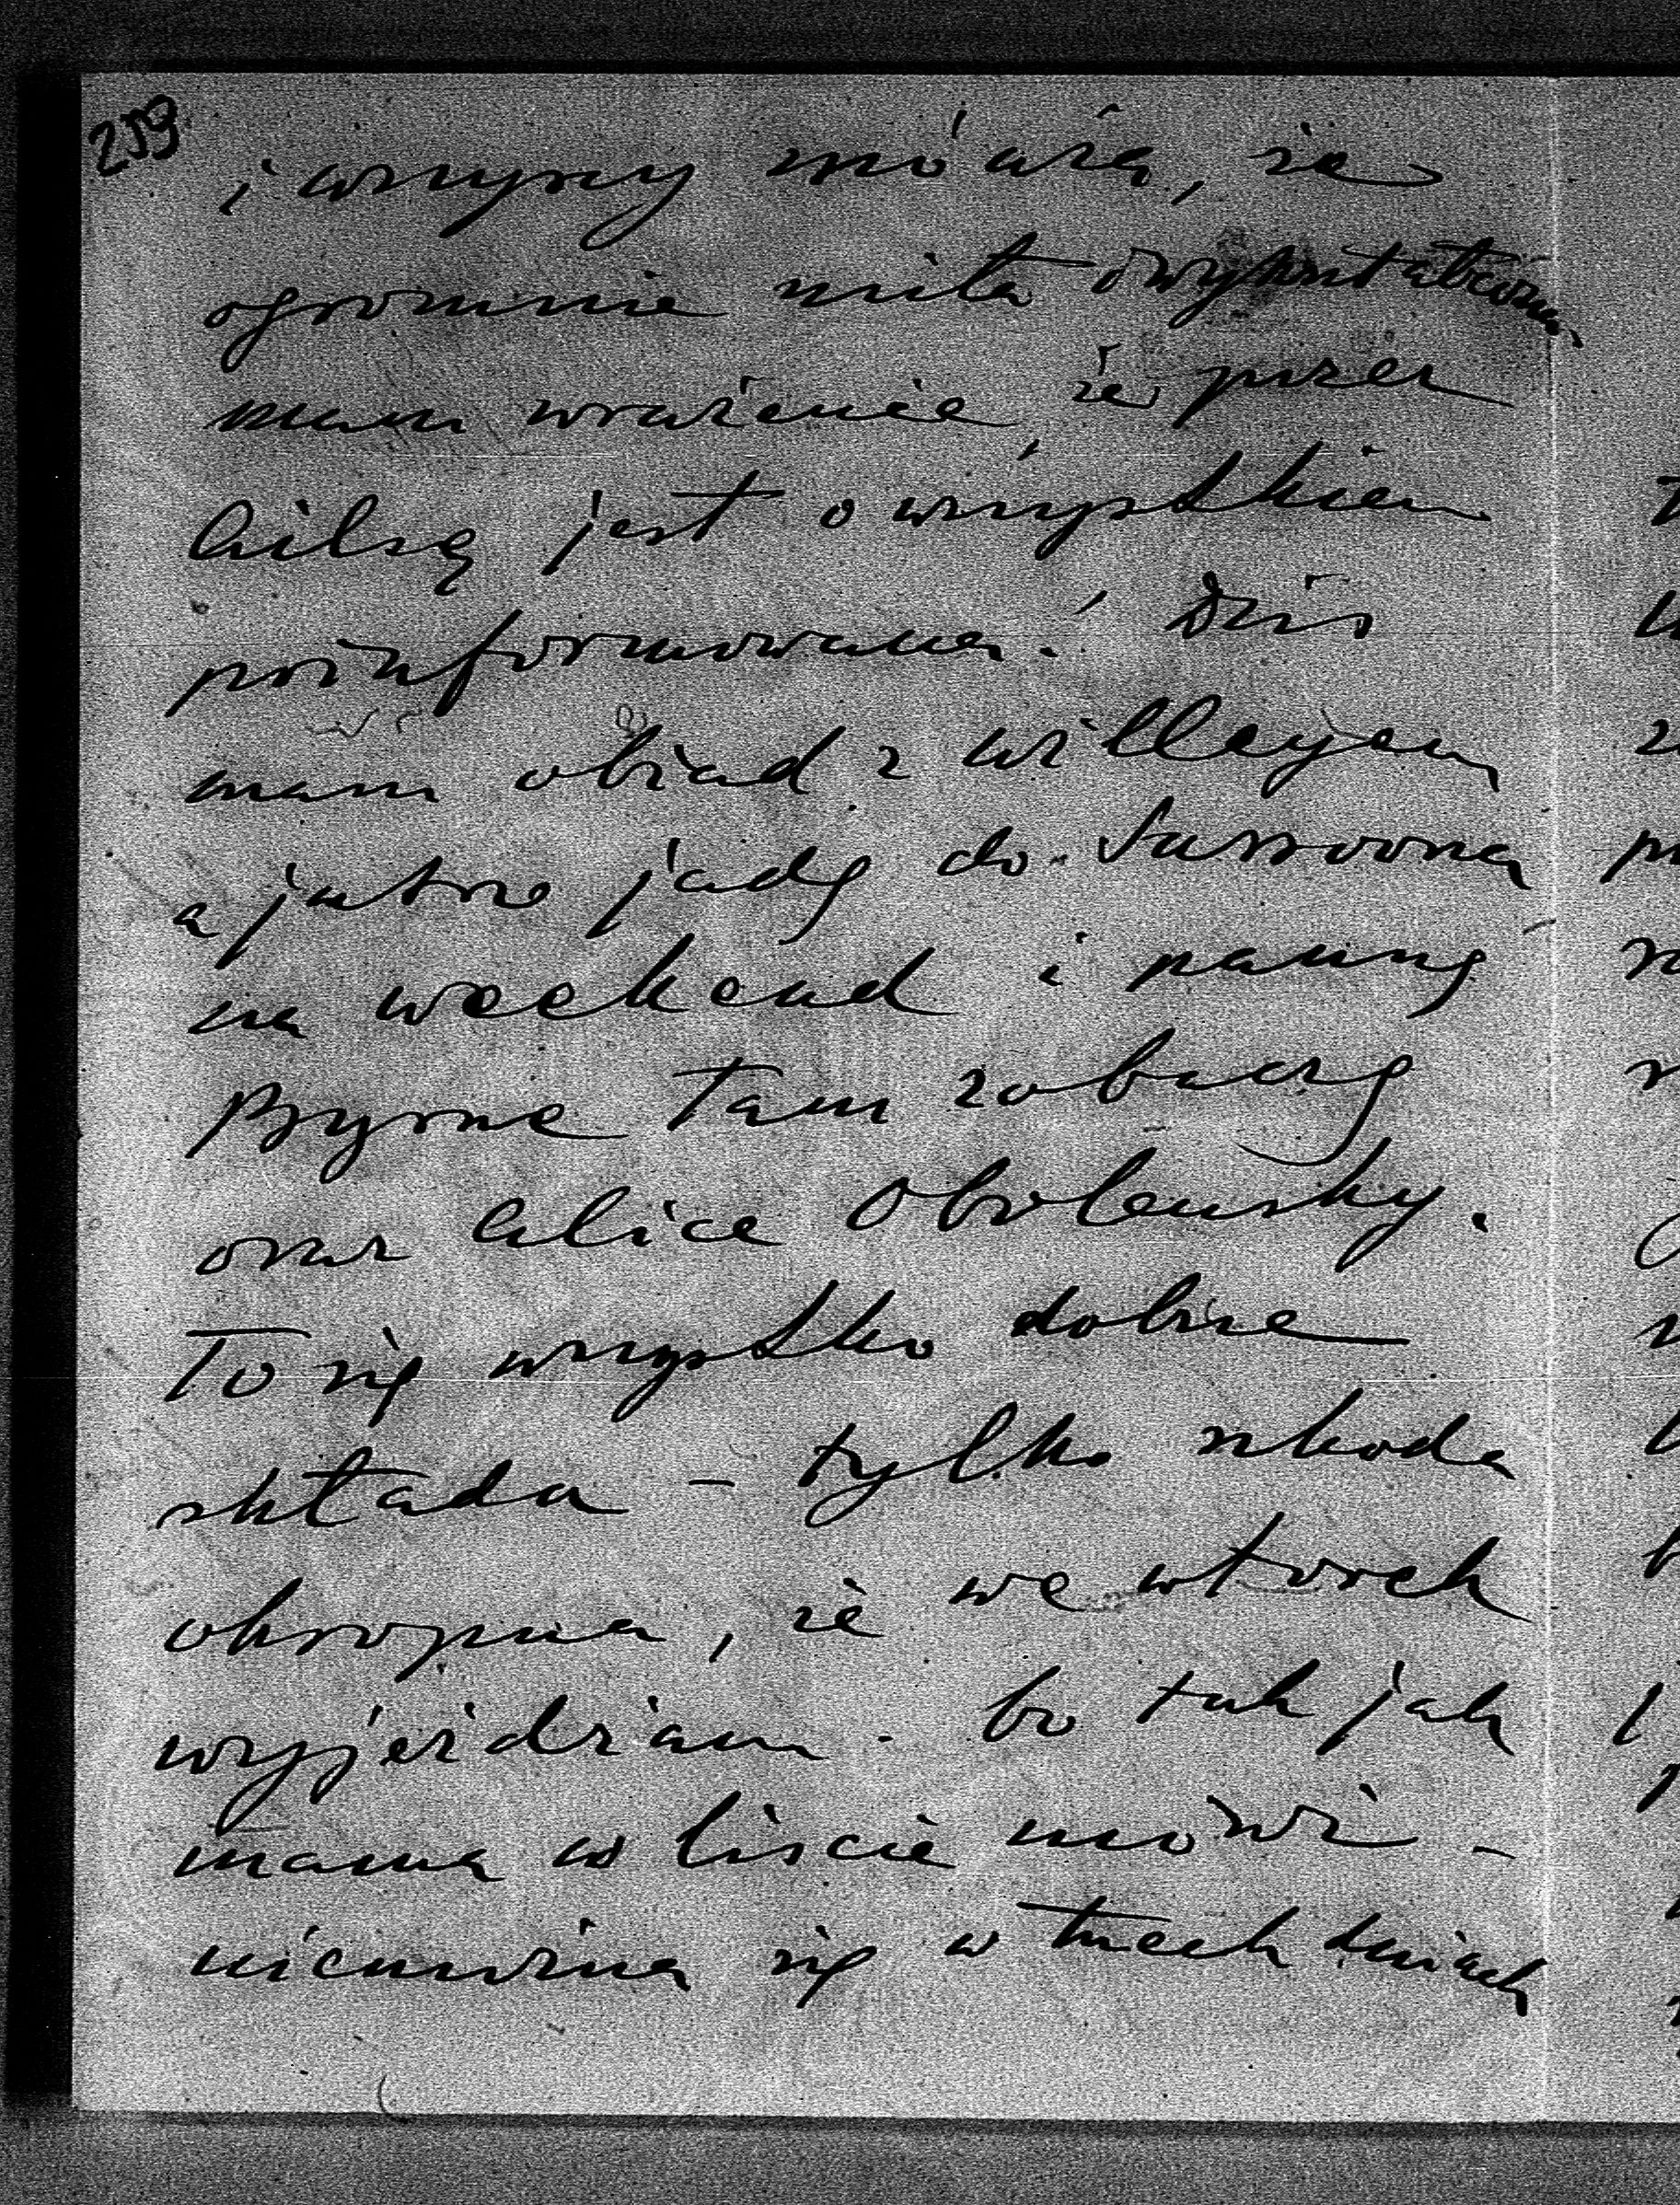 259
i wszyscy mówią, że
ogromnie miła i wykształcona,
mam wrażenie, że przez
Ailsę jest o wszystkiem
poinformowana. Dziś
mam obiad z Willeyem
a jutro jadę do Sassoona
na weekend i pannę
Byrne tam zobaczę
oraz Alice Obolensky.
To się wszystko dobrze
składa – tylko szkoda
okropna, że we wtorek
wyjeżdżam. bo tak jak
mama w liście mówi –
nicmożna się w trzech dniach